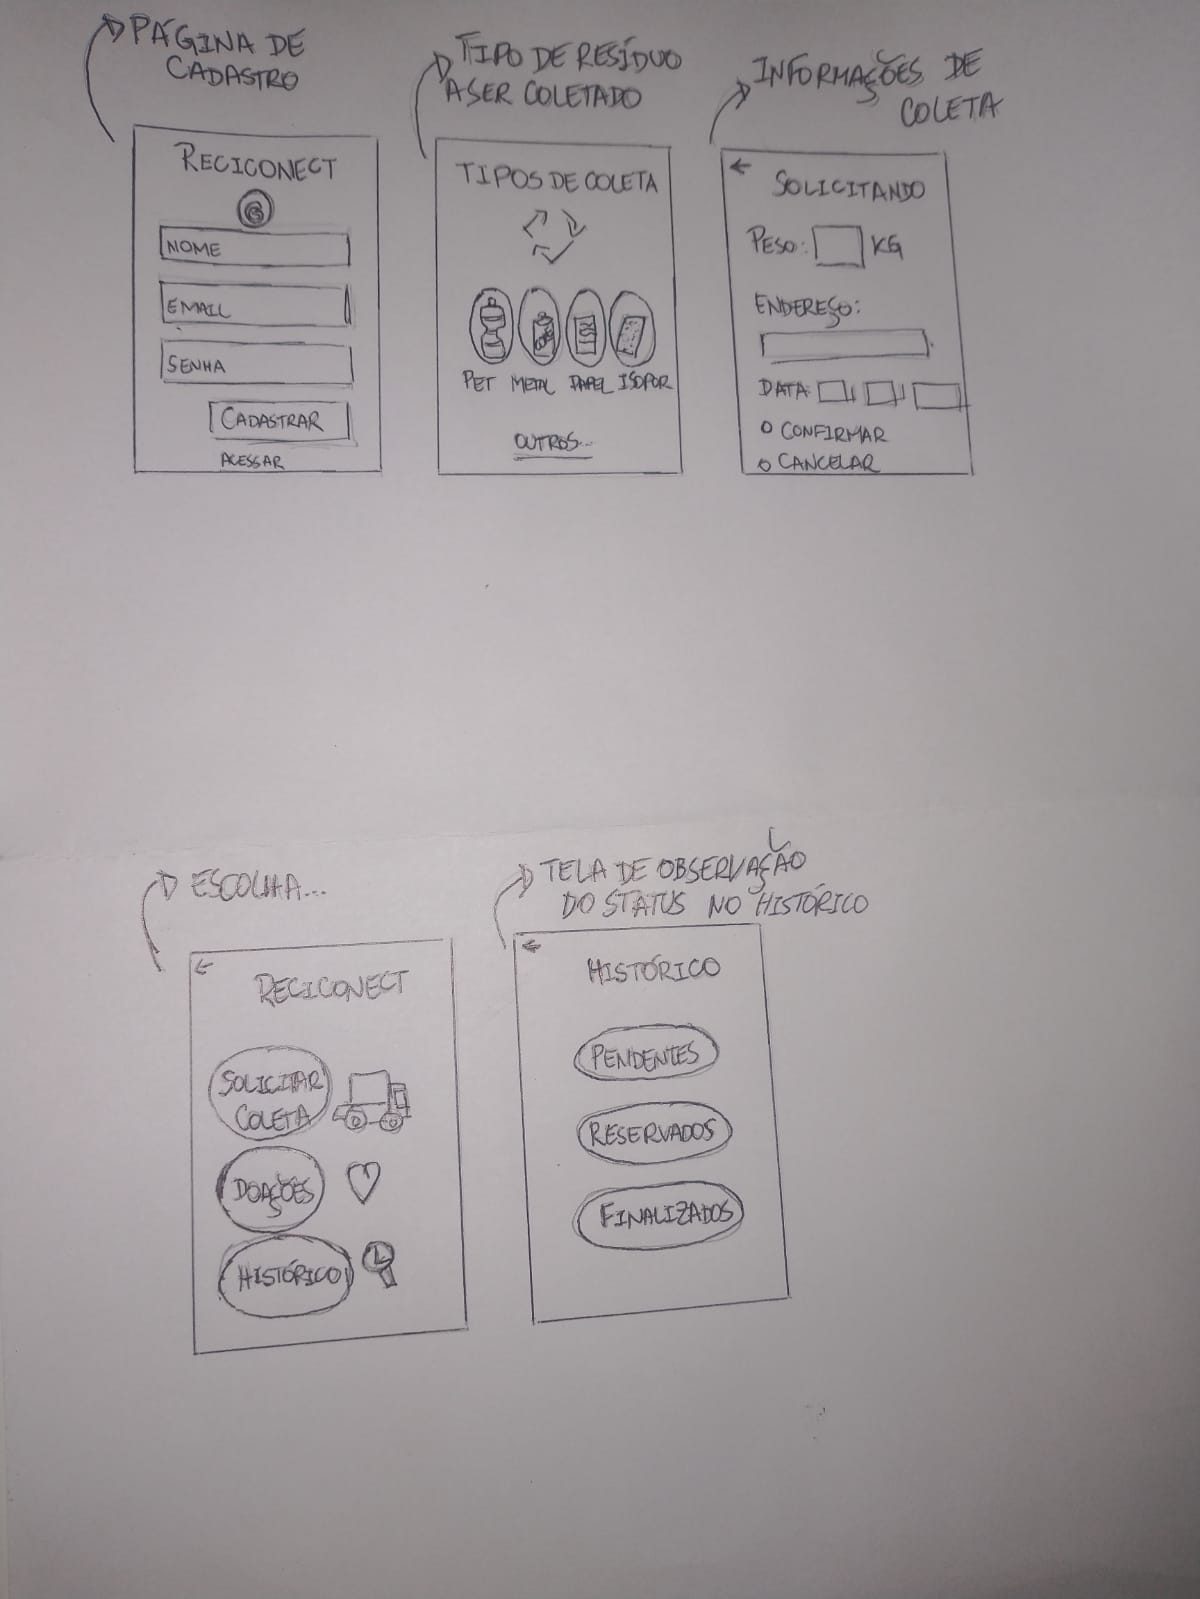 PÁGINA DE
CADASTRO
RECICONECT
NOME
EMAIL
SENHA
CADASTRAR
ACESSAR
TIPO DE RESÍDUO
A SER COLETADO
TIPOS DE COLETA
PET METAL PAPEL ISOPOR
OUTROS...
INFORMAÇÕES DE
COLETA
SOLICITANDO
PESO: KG
ENDEREÇO:
DATA: / /
CONFIRMAR
CANCELAR
ESCOLHA...
RECICONECT
SOLICITAR
COLETA
DOAÇÕES
HISTÓRICO
TELA DE OBSERVAÇÃO
DO STATUS NO HISTÓRICO
HISTÓRICO
PENDENTES
RESERVADOS
FINALIZADOS